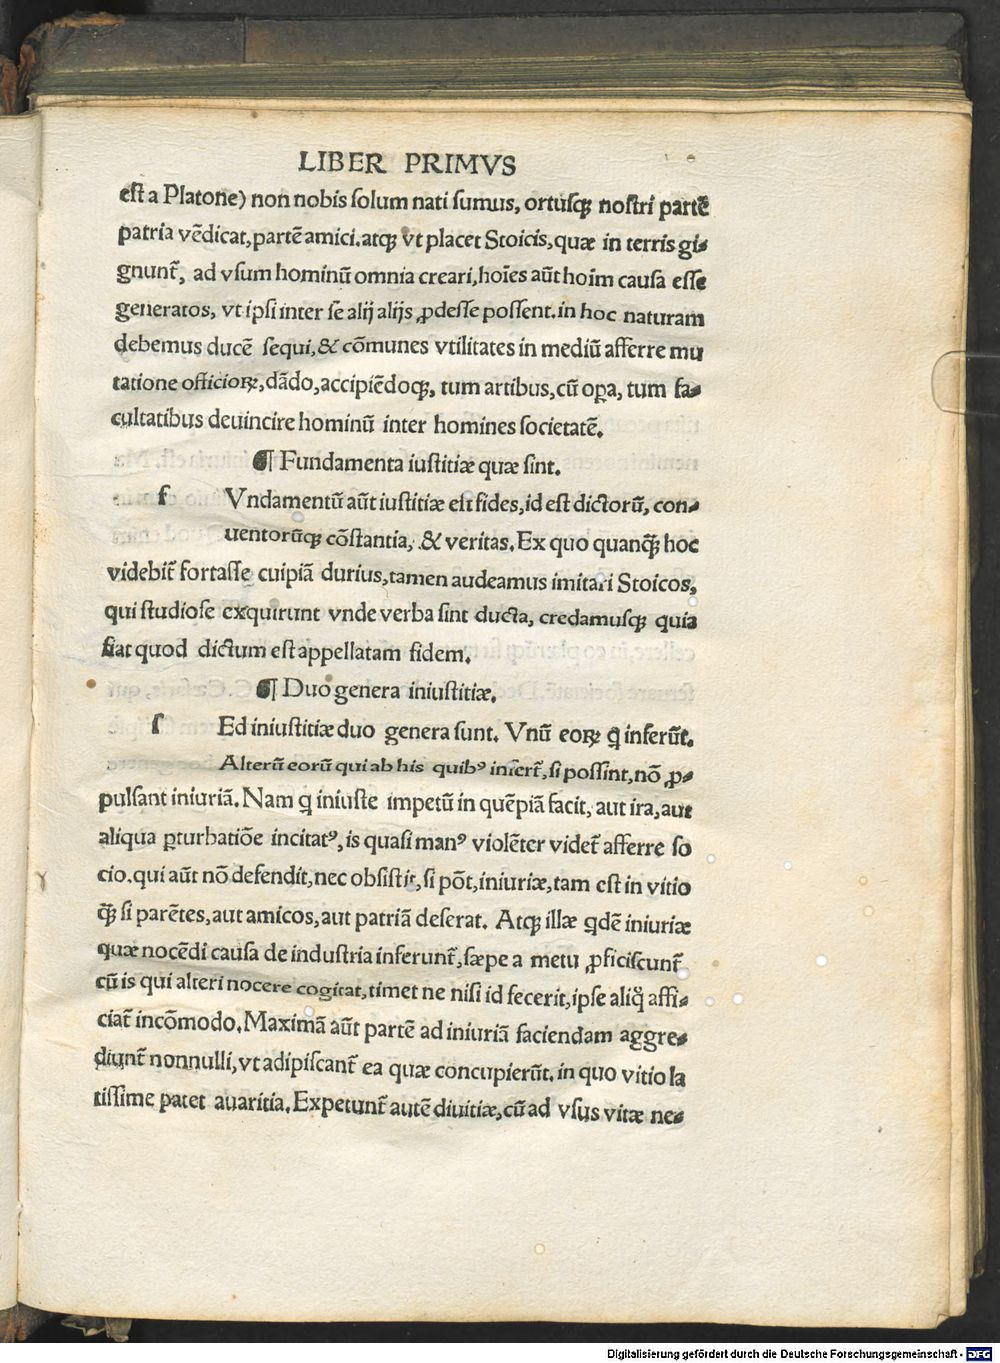 LIBER PRIMVS
est a Platone) non nobis solum nati sumus, ortusqꝫ nostri partē
patria vēdicat, partē amici. atqꝫ vt placet Stoicis, quæ in terris gi⸗
gnunt̄, ad vsum hominū omnia creari, hoīes aūt hoīm causa esse
generatos, vt ipsi inter se alij alijs ꝓdesse possent. in hoc naturam
debemus ducē sequi, & cōmunes vtilitates in mediū afferre mu
tatione officioꝝ, dādo, accipiēdoqꝫ, tum artibus, cū oꝑa, tum fa⸗
cultatibus deuincire hominū inter homines societatē.
¶ Fundamenta iustitiæ quæ sint.
f Vndamentū aūt iustitiæ est fides, id est dictorū, con⸗
uentorūqꝫ cōstantia, & veritas. Ex quo quanqꝫ̄ hoc
videbit̄ fortasse cuipiā durius, tamen audeamus imitari Stoicos,
qui studiose exquirunt vnde verba sint ducta, credamusqꝫ quia
fiat quod dictum est appellatam fidem.
¶ Duo genera iniustitiæ.
ſ Ed iniustitiæ duo genera sunt. Vnū eoꝝ q̄ inferūt.
Alterū eorū qui ab his quibꝰ infert̄, si possint, nō ꝓ⸗
pulsant iniuriā. Nam q iniuste impetū in quēpiā facit, aut ira, aut
aliqua ꝑturbatiōe incitatꝰ, is quasi manꝰ violēter videt̄ afferre so
cio. qui aūt nō defendit, nec obsistit, si pōt, iniuriæ, tam est in vitio
qꝫ̄ si parētes, aut amicos, aut patriā deserat. Atqꝫ illæ qdē iniuriæ
quæ nocēdi causa de industria inferunt̄, sæpe a metu ꝓficiscunt̄
cū is qui alteri nocere cogitat, timet ne nisi id fecerit, ipse aliq̊ affi⸗
ciat̄ incōmodo. Maximā aūt partē ad iniuriā faciendam aggre⸗
diunt̄ nonnulli, vt adipiscant̄ ea quæ concupierūt. in quo vitio la
tissime patet auaritia. Expetunt̄ autē diuitiæ, cū ad vsus vitæ ne⸗
Digitalisierung gefördert durch die Deutsche Forschungsgemeinschaft - DFG